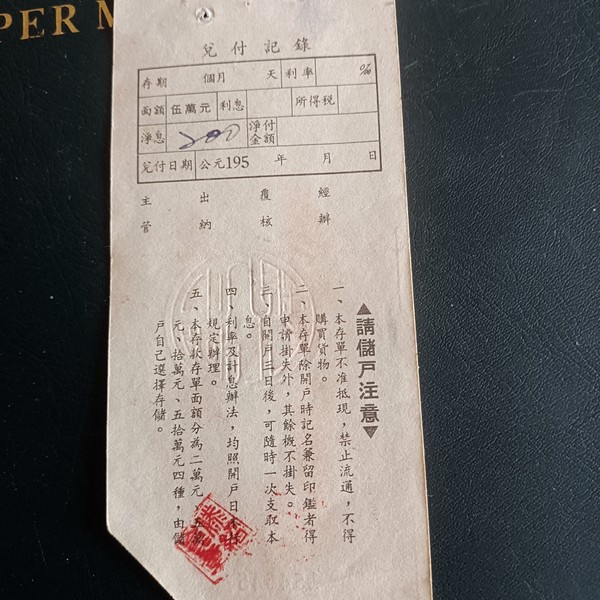 PER M
兌付記錄
存期 個月 天 利率 ‰
面額 伍萬元 利息 所得税
淨息 200 淨付金額
兌付日期 公元195 年 月 日
主管 出納 覆核 經辦
▲請儲戶注意▼
一、本存單不准抵現，禁止流通，不得
購買貨物。
二、本存單除開戶時記名兼留印鑑者得
申請掛失外，其餘概不掛失。
三、自開戶三日後，可隨時一次支取本
息。
四、利率及計息辦法，均照開戶日本行
規定辦理。
五、本存款存單面額分為二萬元、五萬
元、拾萬元、五拾萬元四種，由儲
戶自己選擇存儲。